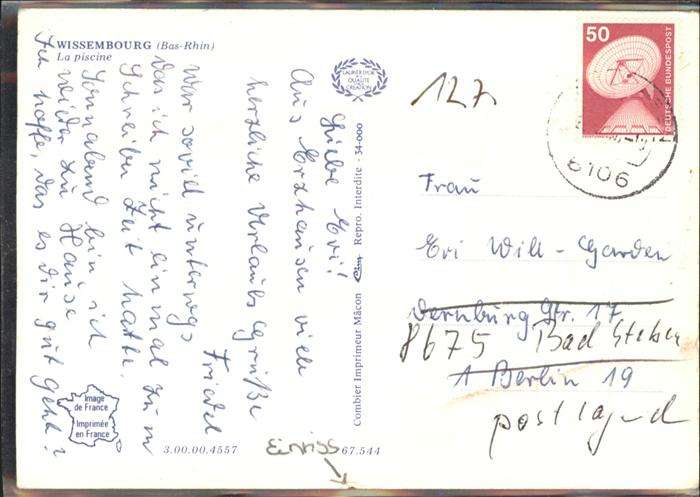 WISSEMBOURG (Bas-Rhin)
La piscine
Liebe Evi!
Aus Erzhausen viele
herzliche Urlaubsgrüße
Friedel
War soviel unterwegs
das ich nicht einmal zum
Schreiben Zeit hatte.
Sonnabend bin ich
wieder zu Hause
Ich hoffe, das es dir gut geht?
LAURIER D'OR
DE LA
QUALITÉ
CREATION
Combier Imprimeur Mâcon Cim Repro. Interdite - 34-000
Image
de France
Imprimée
en France
3.00.00.4557
67.544
Einriss
127
50
DEUTSCHE BUNDESPOST
6106
Frau
Evi Will-Garden
Dernburg Str. 17
8675 Bad Steben
1 Berlin 19
postlagernd